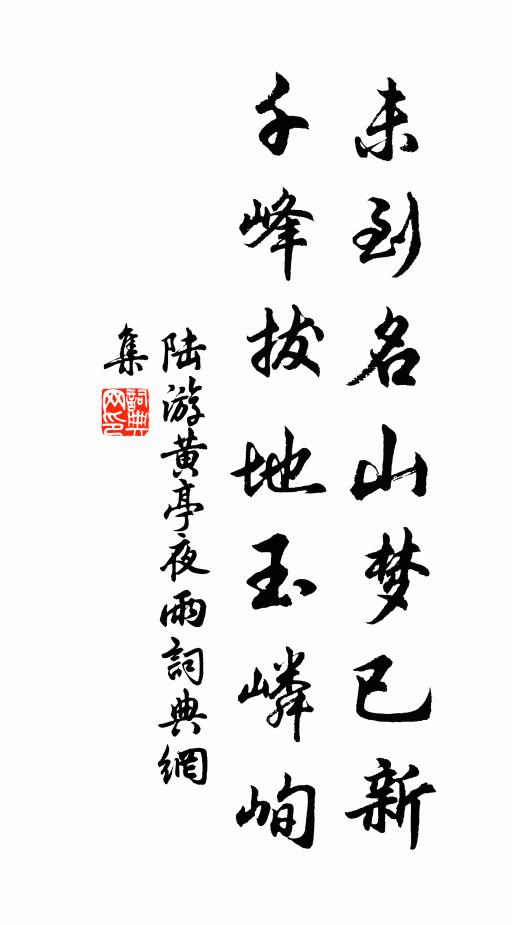 未到名山梦已新
千峰拔地玉嶙峋
陆游黄亭夜雨詞典網
集
詞典
网印